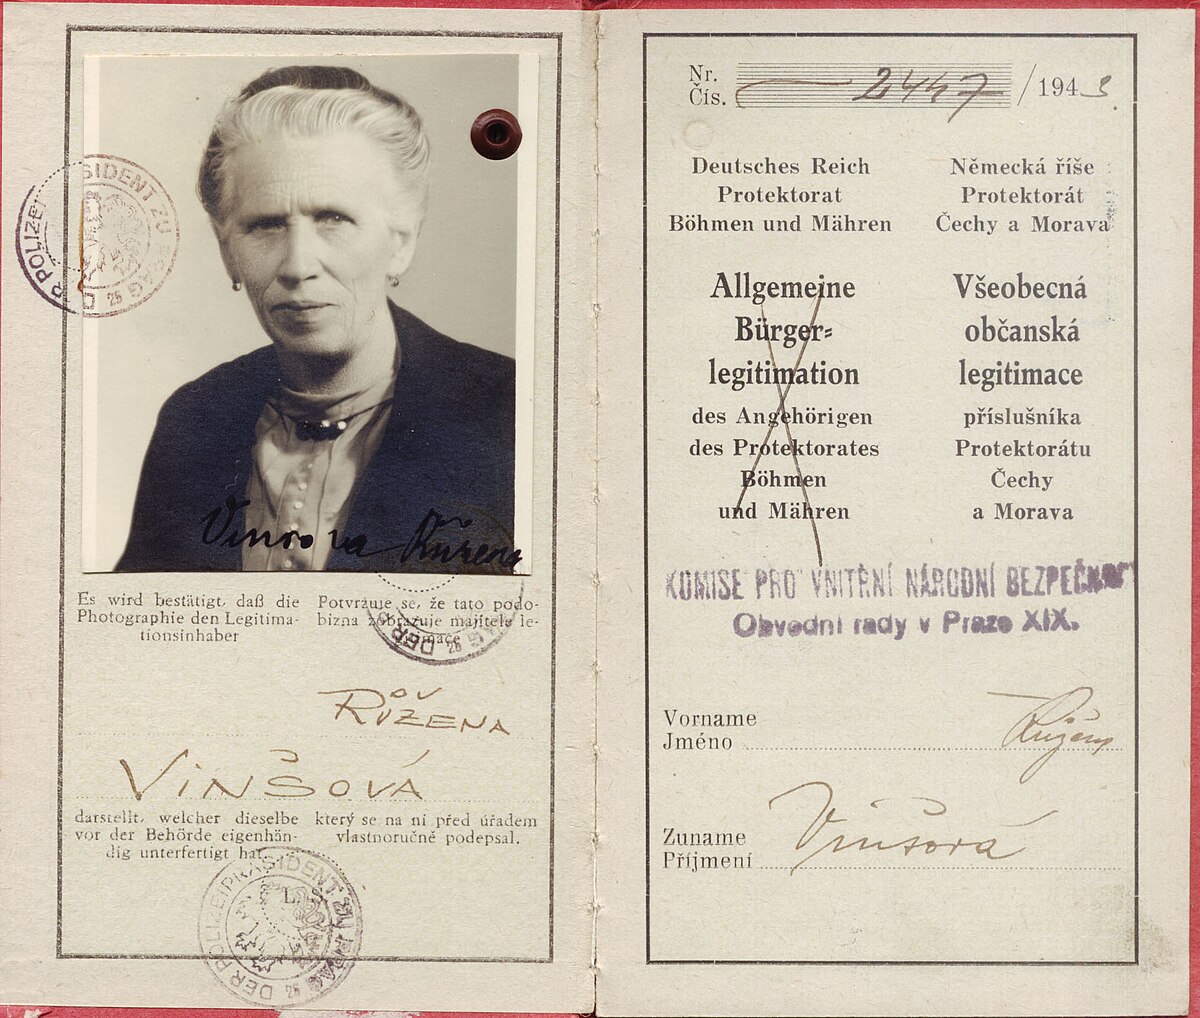 DER POLIZEIPRÄSIDENT ZU PRAG 25
Vinšova Růžena
Es wird bestätigt, daß die
Photographie den Legitima-
tionsinhaber
Potvrzuje se, že tato podo-
bizna zobrazuje majitele le-
DER 25
RŮŽENA
VINŠOVÁ
darstellt, welcher dieselbe
vor der Behörde eigenhän-
dig unterfertigt hat.
který se na ni před úřadem
vlastnoručně podepsal.
L. S.
DER POLIZEIPRÄSIDENT ZU PRAG 25
Nr.
Čís. 2447 /1943
Deutsches Reich
Protektorat
Böhmen und Mähren
Německá říše
Protektorát
Čechy a Morava
Allgemeine
Bürger-
legitimation
des Angehörigen
des Protektorates
Böhmen
und Mähren
Všeobecná
občanská
legitimace
příslušníka
Protektorátu
Čechy
a Morava
KOMISE PRO VNITŘNÍ NÁRODNÍ BEZPEČNOST
Obvodní rady v Praze XIX.
Vorname
Jméno Růžena
Zuname
Příjmení Vinšová